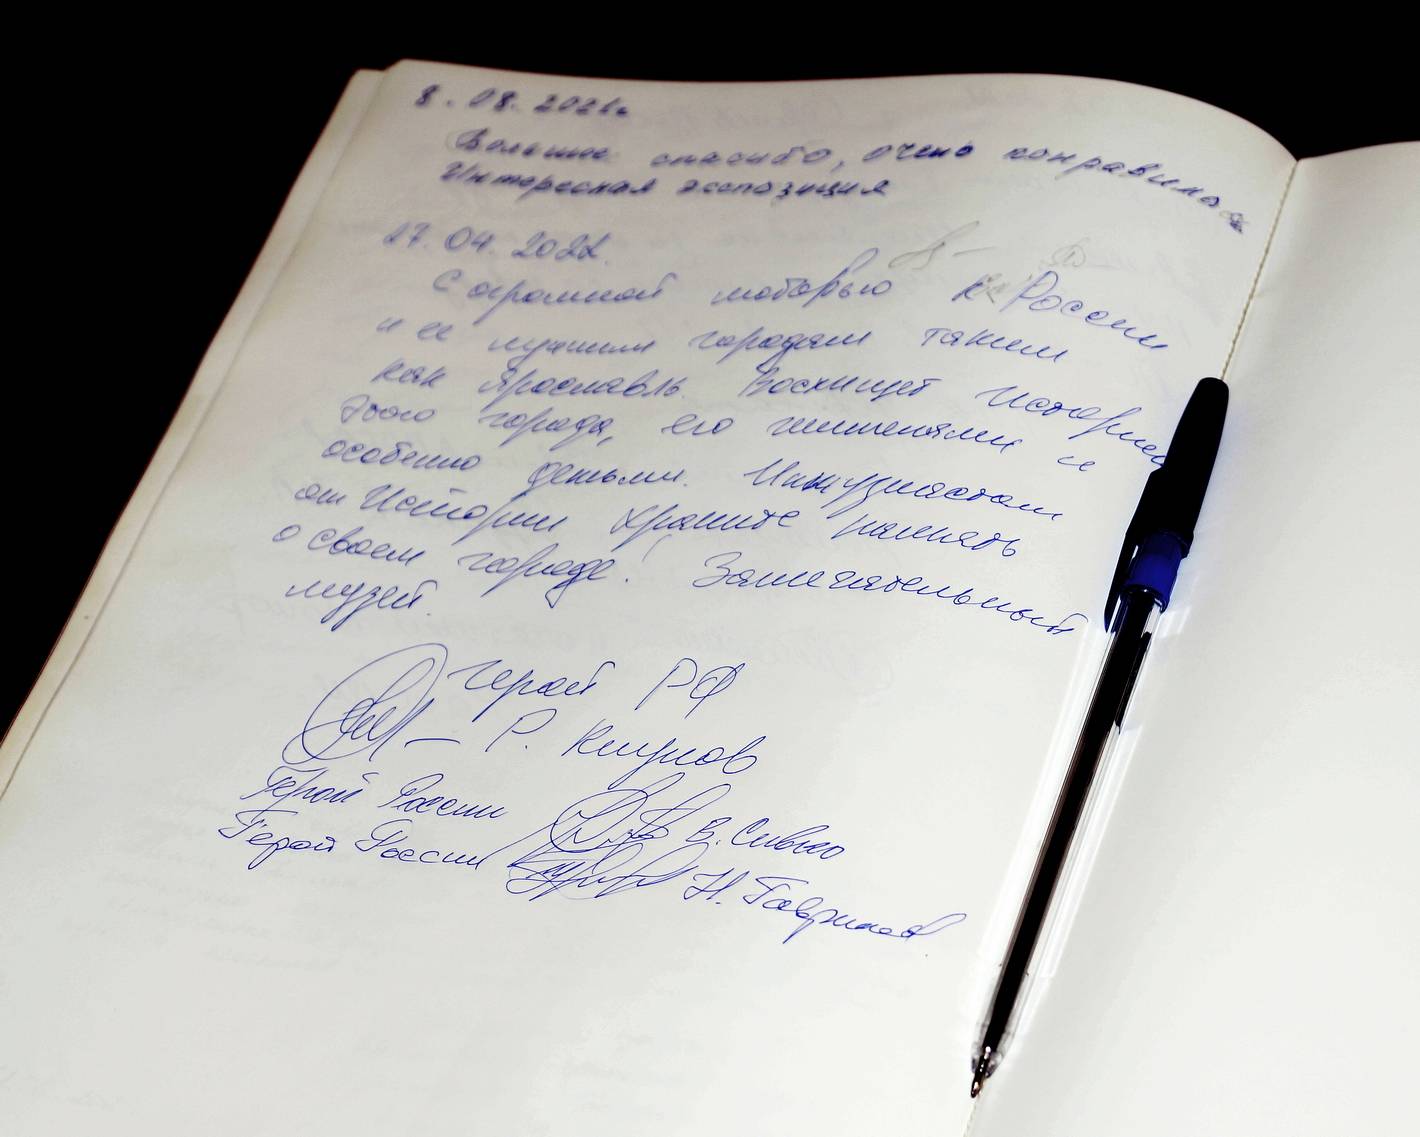 8. 08. 2021г.
Большое спасибо, очень понравилось
Интересная экспозиция
17. 04. 2022.
С огромной любовью к России
и ее лучшим городам таким
как Ярославль. Восхищает История
этого города, его жителями и
особенно детьми.
от Истории храните память
о своем городе! Замечательный
музей.
Герой РФ
— Р. Клупов
Герой России В. Сивко
Герой России Н. Гаврилов